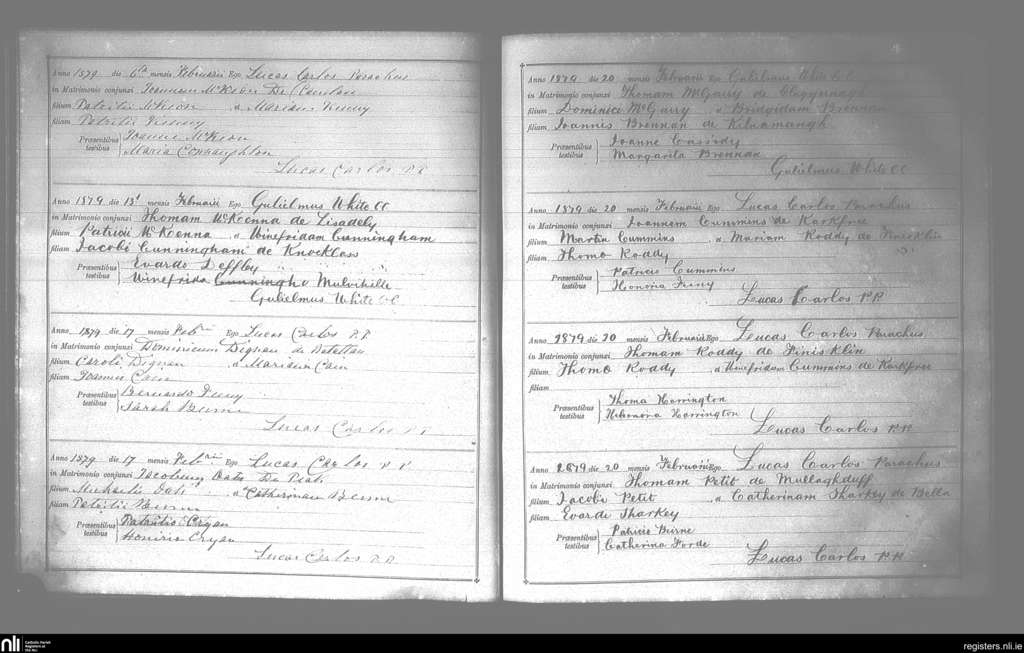 Anno 1879 die 6th mensis Februarii Ego Lucas Carlos Parochus
in Matrimonio conjunxi Joannem McKeon De
filium Patritii McKeon a Mariam
filiam Patritii
Præsentibus testibus Joanne McKeon
Maria Connaughton
Lucas Carlos P.P.
Anno 1879 die 13 mensis Februarii Ego Gulielmus White CC
in Matrimonio conjunxi Thomam McKenna de Lisadely
filium Patricii McKenna a Winefridam Cunningham
filiam Jacobi Cunningham de Knocklass
Præsentibus testibus Evardo Deffley
Winefrida Cunningh Mulvihille
Gulielmus White CC
Anno 1879 die 17 mensis Feb Ego Lucas Carlos P.P.
in Matrimonio conjunxi Dominicum Dignan de
filium Caroli Dignan a Mariam Cain
filiam Joannis Cain
Præsentibus testibus Bernardo
Sarah Beirne
Lucas Carlos PP
Anno 1879 die 17 mensis Feb Ego Lucas Carlos P P
in Matrimonio conjunxi Jacobum
filium Michaelis a Catherinam Beirne
filiam Patritii Beirne
Præsentibus testibus Patritio Cryan
Honoria Cryan
Lucas Carlos P.P.
Anno 1879 die 20 mensis Februarii Ego Gulielmus White CC
in Matrimonio conjunxi Thomam McGarry de Cloggernagh
filium Dominici McGarry a Bridgidam Brennan
filiam Joannis Brennan de Kilnamangh
Præsentibus testibus Joanne Cassidy
Margarita Brennan
Gulielmus White CC
Anno 1879 die 20 mensis Februarii Ego Lucas Carlos Parachus
in Matrimonio conjunxi Joannem Cummins de Karkfree
filium Martin Cummins a Mariam Roddy de Finisklin
filiam Thomo Roddy
Præsentibus testibus Patricio Cummins
Honoria Feeny
Lucas Carlos PP
Anno 1879 die 20 mensis Februarii Ego Lucas Carlos Parachus
in Matrimonio conjunxi Thomam Roddy de Finisklin
filium Thomo Roddy a Winefridam Cummins de Karkfree
filiam
Præsentibus testibus Thoma Harrington
Harrington
Lucas Carlos PP
Anno 1879 die 20 mensis Februarii Ego Lucas Carlos Parachus
in Matrimonio conjunxi Thomam Petit de Mullaghduff
filium Jacobi Petit a Catherinam Sharkey de Bella
filiam Evarde Sharkey
Præsentibus testibus Patricio Beirne
Catherina Forde
Lucas Carlos PP
nli
Catholic Parish Registers at the NLI
registers.nli.ie